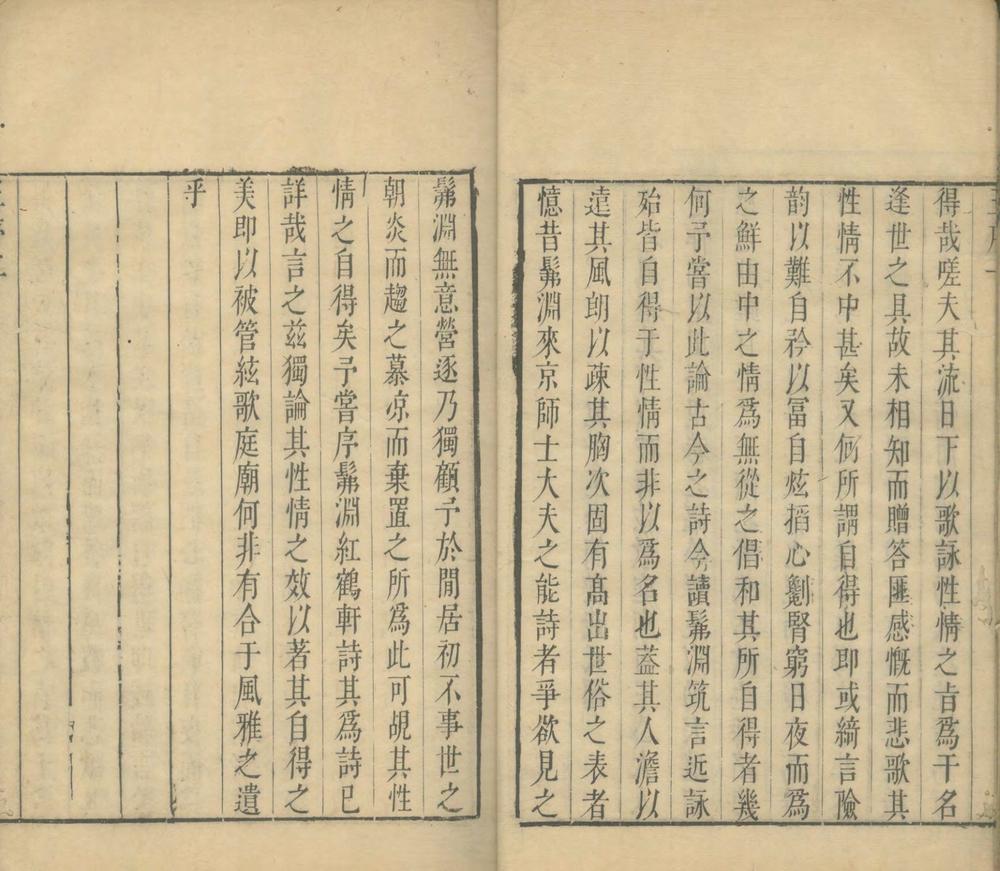 得哉嗟夫其流日下以歌詠性情之旨爲干名
逢世之具故未相知而贈答匪感慨而悲歌其
性情不中甚矣又何所謂自得也即或綺言險
韵以難自矜以冨自炫搯心劌腎窮日夜而爲
之鮮由中之情爲無從之倡和其所自得者幾
何予嘗以此論古今之詩今讀髴淵筑言近詠
始皆自得于性情而非以爲名也蓋其人澹以
遠其風朗以疎其胸次固有髙出世俗之表者
憶昔髴淵來京師士大夫之能詩者爭欲見之
髴淵無意營逐乃獨顧予於閒居初不事世之
朝炎而趨之慕凉而棄置之所爲此可覘其性
情之自得矣予嘗序髴淵紅鶴軒詩其爲詩已
詳哉言之茲獨論其性情之效以著其自得之
美即以被管絃歌庭廟何非有合于風雅之遺
乎